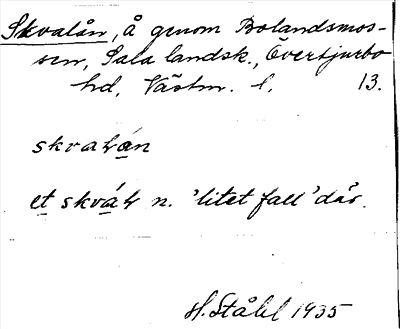 Skvalån, å genom Bolandsmos-
sen, Sala landsk., Övertjurbo
hd, Västm. l. 13.
skvalån
et skvál n. 'litet fall' där.
H. Ståhl 1935